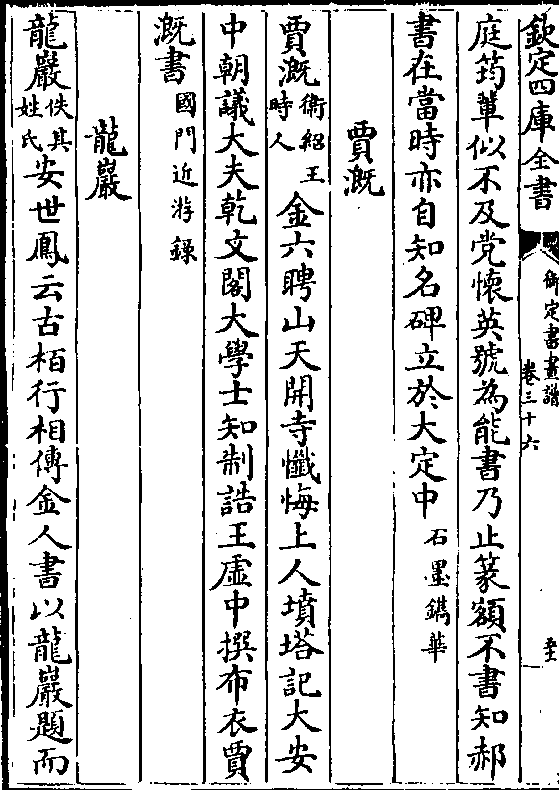 欽定四庫全書
御定書畫譜
卷三十六
庭筠輩似不及党懷英號為能書乃止篆額不書知郝
書在當時亦自知名碑立於大定中石墨鐫華
賈漑
賈漑衛紹王時人金六聘山天開寺懺悔上人墳塔記大安
中朝議大夫乾文閣大學士知制誥王虛中撰布衣賈
漑書國門近游錄
龍巖
龍巖佚其姓氏安世鳳云古栢行相傳金人書以龍巖題而